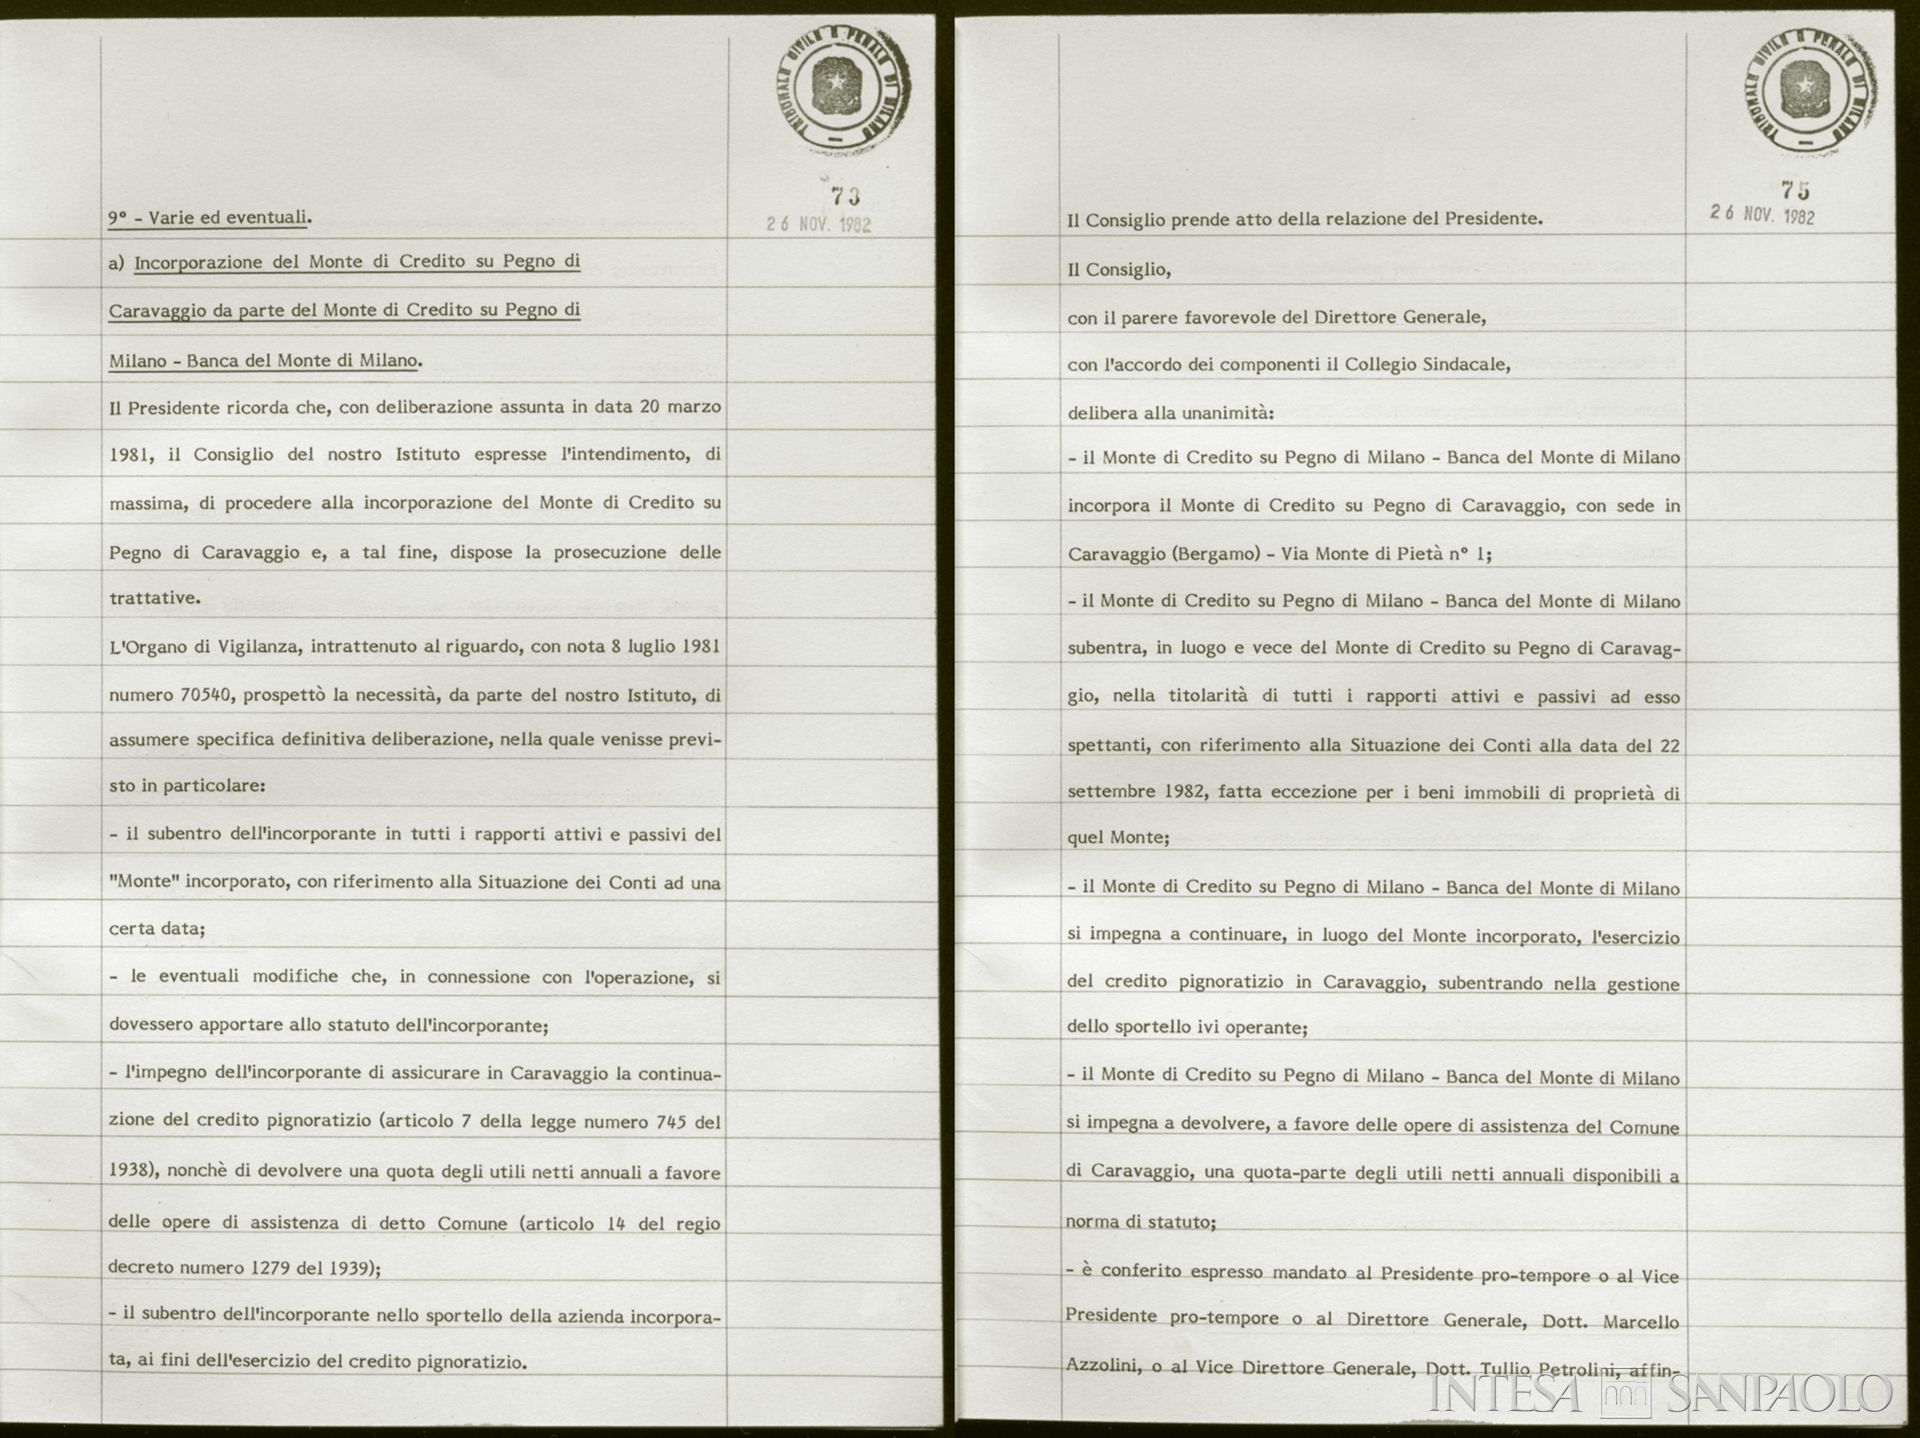 TRIBUNALE CIVILE E PENALE DI MILANO
73
26 NOV. 1982
9° - Varie ed eventuali.
a) Incorporazione del Monte di Credito su Pegno di
Caravaggio da parte del Monte di Credito su Pegno di
Milano - Banca del Monte di Milano.
Il Presidente ricorda che, con deliberazione assunta in data 20 marzo
1981, il Consiglio del nostro Istituto espresse l'intendimento, di
massima, di procedere alla incorporazione del Monte di Credito su
Pegno di Caravaggio e, a tal fine, dispose la prosecuzione delle
trattative.
L'Organo di Vigilanza, intrattenuto al riguardo, con nota 8 luglio 1981
numero 70540, prospettò la necessità, da parte del nostro Istituto, di
assumere specifica definitiva deliberazione, nella quale venisse previ-
sto in particolare:
- il subentro dell'incorporante in tutti i rapporti attivi e passivi del
"Monte" incorporato, con riferimento alla Situazione dei Conti ad una
certa data;
- le eventuali modifiche che, in connessione con l'operazione, si
dovessero apportare allo statuto dell'incorporante;
- l'impegno dell'incorporante di assicurare in Caravaggio la continua-
zione del credito pignoratizio (articolo 7 della legge numero 745 del
1938), nonchè di devolvere una quota degli utili netti annuali a favore
delle opere di assistenza di detto Comune (articolo 14 del regio
decreto numero 1279 del 1939);
- il subentro dell'incorporante nello sportello della azienda incorpora-
ta, ai fini dell'esercizio del credito pignoratizio.
TRIBUNALE CIVILE E PENALE DI MILANO
75
26 NOV. 1982
Il Consiglio prende atto della relazione del Presidente.
Il Consiglio,
con il parere favorevole del Direttore Generale,
con l'accordo dei componenti il Collegio Sindacale,
delibera alla unanimità:
- il Monte di Credito su Pegno di Milano - Banca del Monte di Milano
incorpora il Monte di Credito su Pegno di Caravaggio, con sede in
Caravaggio (Bergamo) - Via Monte di Pietà n° 1;
- il Monte di Credito su Pegno di Milano - Banca del Monte di Milano
subentra, in luogo e vece del Monte di Credito su Pegno di Caravag-
gio, nella titolarità di tutti i rapporti attivi e passivi ad esso
spettanti, con riferimento alla Situazione dei Conti alla data del 22
settembre 1982, fatta eccezione per i beni immobili di proprietà di
quel Monte;
- il Monte di Credito su Pegno di Milano - Banca del Monte di Milano
si impegna a continuare, in luogo del Monte incorporato, l'esercizio
del credito pignoratizio in Caravaggio, subentrando nella gestione
dello sportello ivi operante;
- il Monte di Credito su Pegno di Milano - Banca del Monte di Milano
si impegna a devolvere, a favore delle opere di assistenza del Comune
di Caravaggio, una quota-parte degli utili netti annuali disponibili a
norma di statuto;
- è conferito espresso mandato al Presidente pro-tempore o al Vice
Presidente pro-tempore o al Direttore Generale, Dott. Marcello
Azzolini, o al Vice Direttore Generale, Dott. Tullio Petrolini, affin-
INTESA SANPAOLO